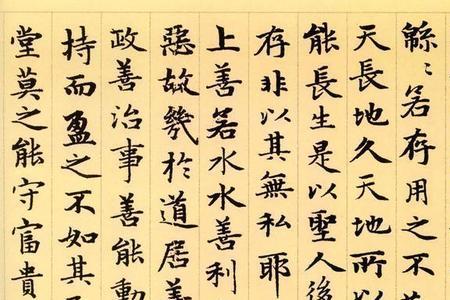 緜〻若存用之不
天長地久天地所以
能長生是以聖人後
存非以其無私耶
上善若水水善利
惡故幾於道居善
政善治事善能動
持而盈之不如其
堂莫之能守富貴